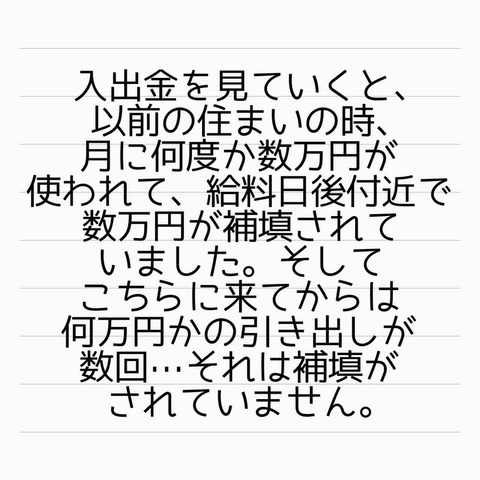 入出金を見ていくと、
以前の住まいの時、
月に何度か数万円が
使われて、給料日後付近で
数万円が補填されて
いました。そして
こちらに来てからは
何万円かの引き出しが
数回…それは補填が
されていません。